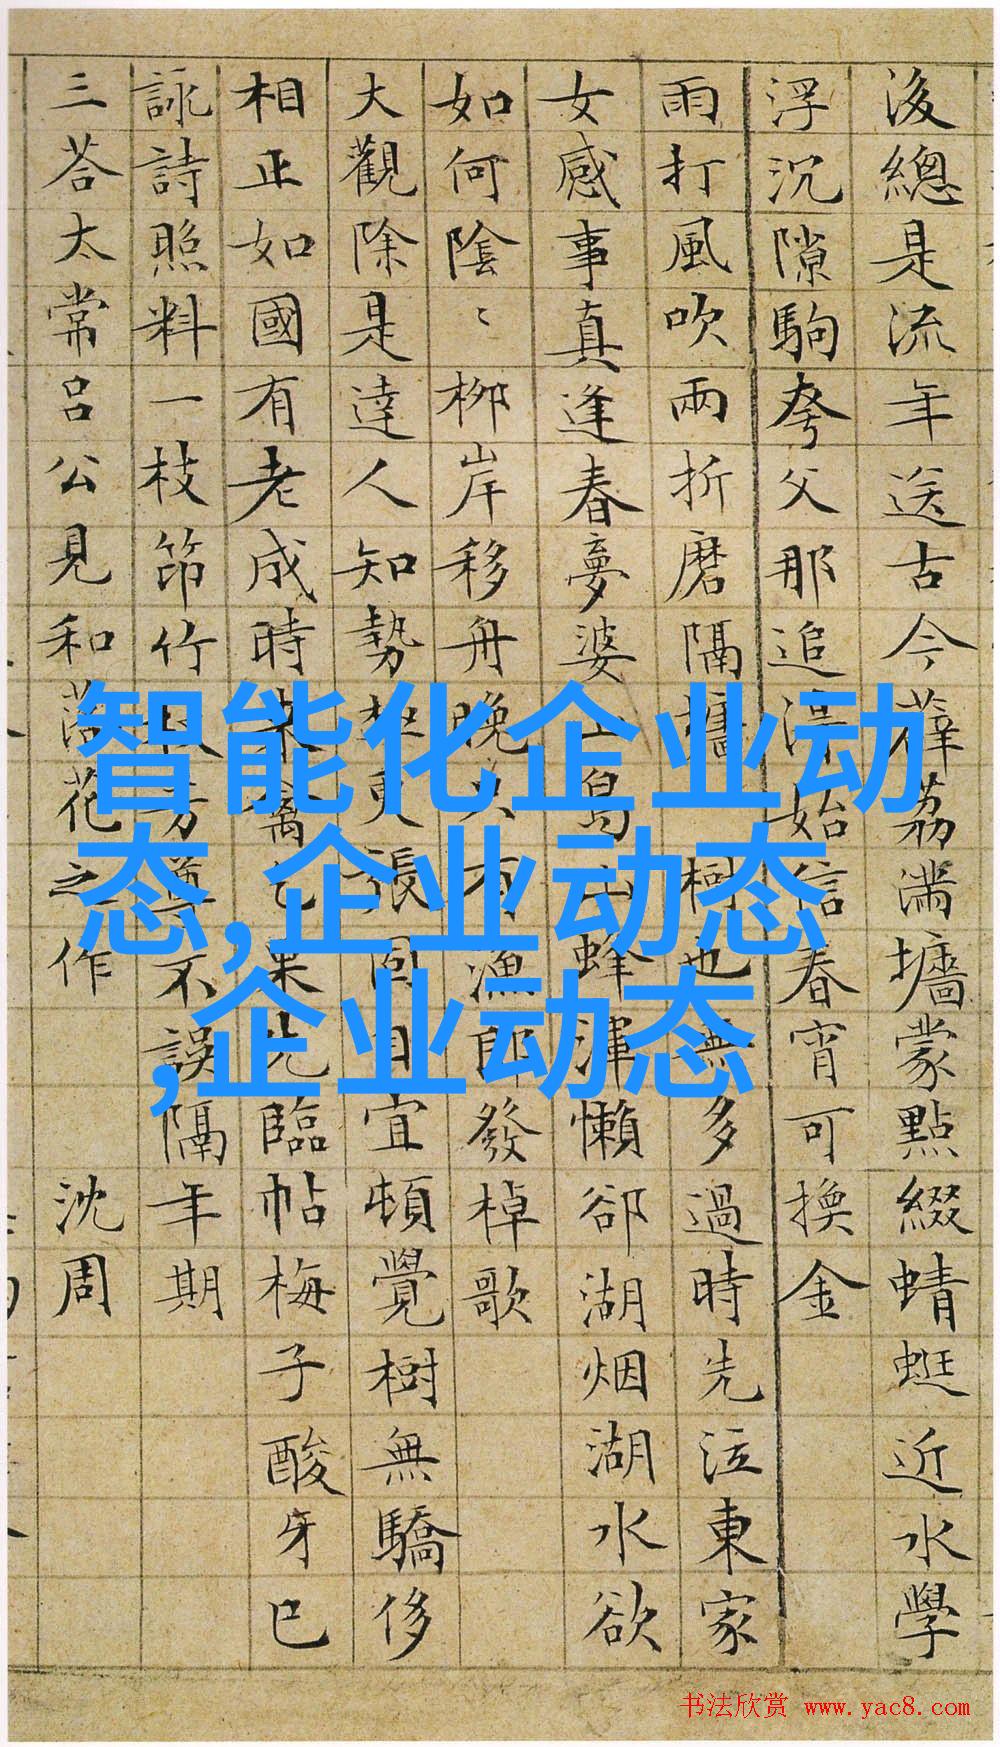 後總是流年送古今薜荔滿墻蒙點綴蜻蜓近水學
浮沉隙駒夸父那追得始信春宵可換金
雨打風吹兩折磨隔墻樹也無多過時先泣東家
女感事真逢春夢婆山蜂渾懶卻湖烟湖水欲
如何陰〻柳岸移舟晚只有漁郎發棹歌
大觀除是達人知勢極更張固自宜頓覺樹無驕侈
相正如國有老成時來禽已果先臨帖梅子酸牙已
詠詩照料一枝笻竹杖芳尊不誤隔年期
三荅太常呂公見和落花之作 沈周
智能化企业动
态,企业动态
,企业动态
书法欣赏 www.yac8.com